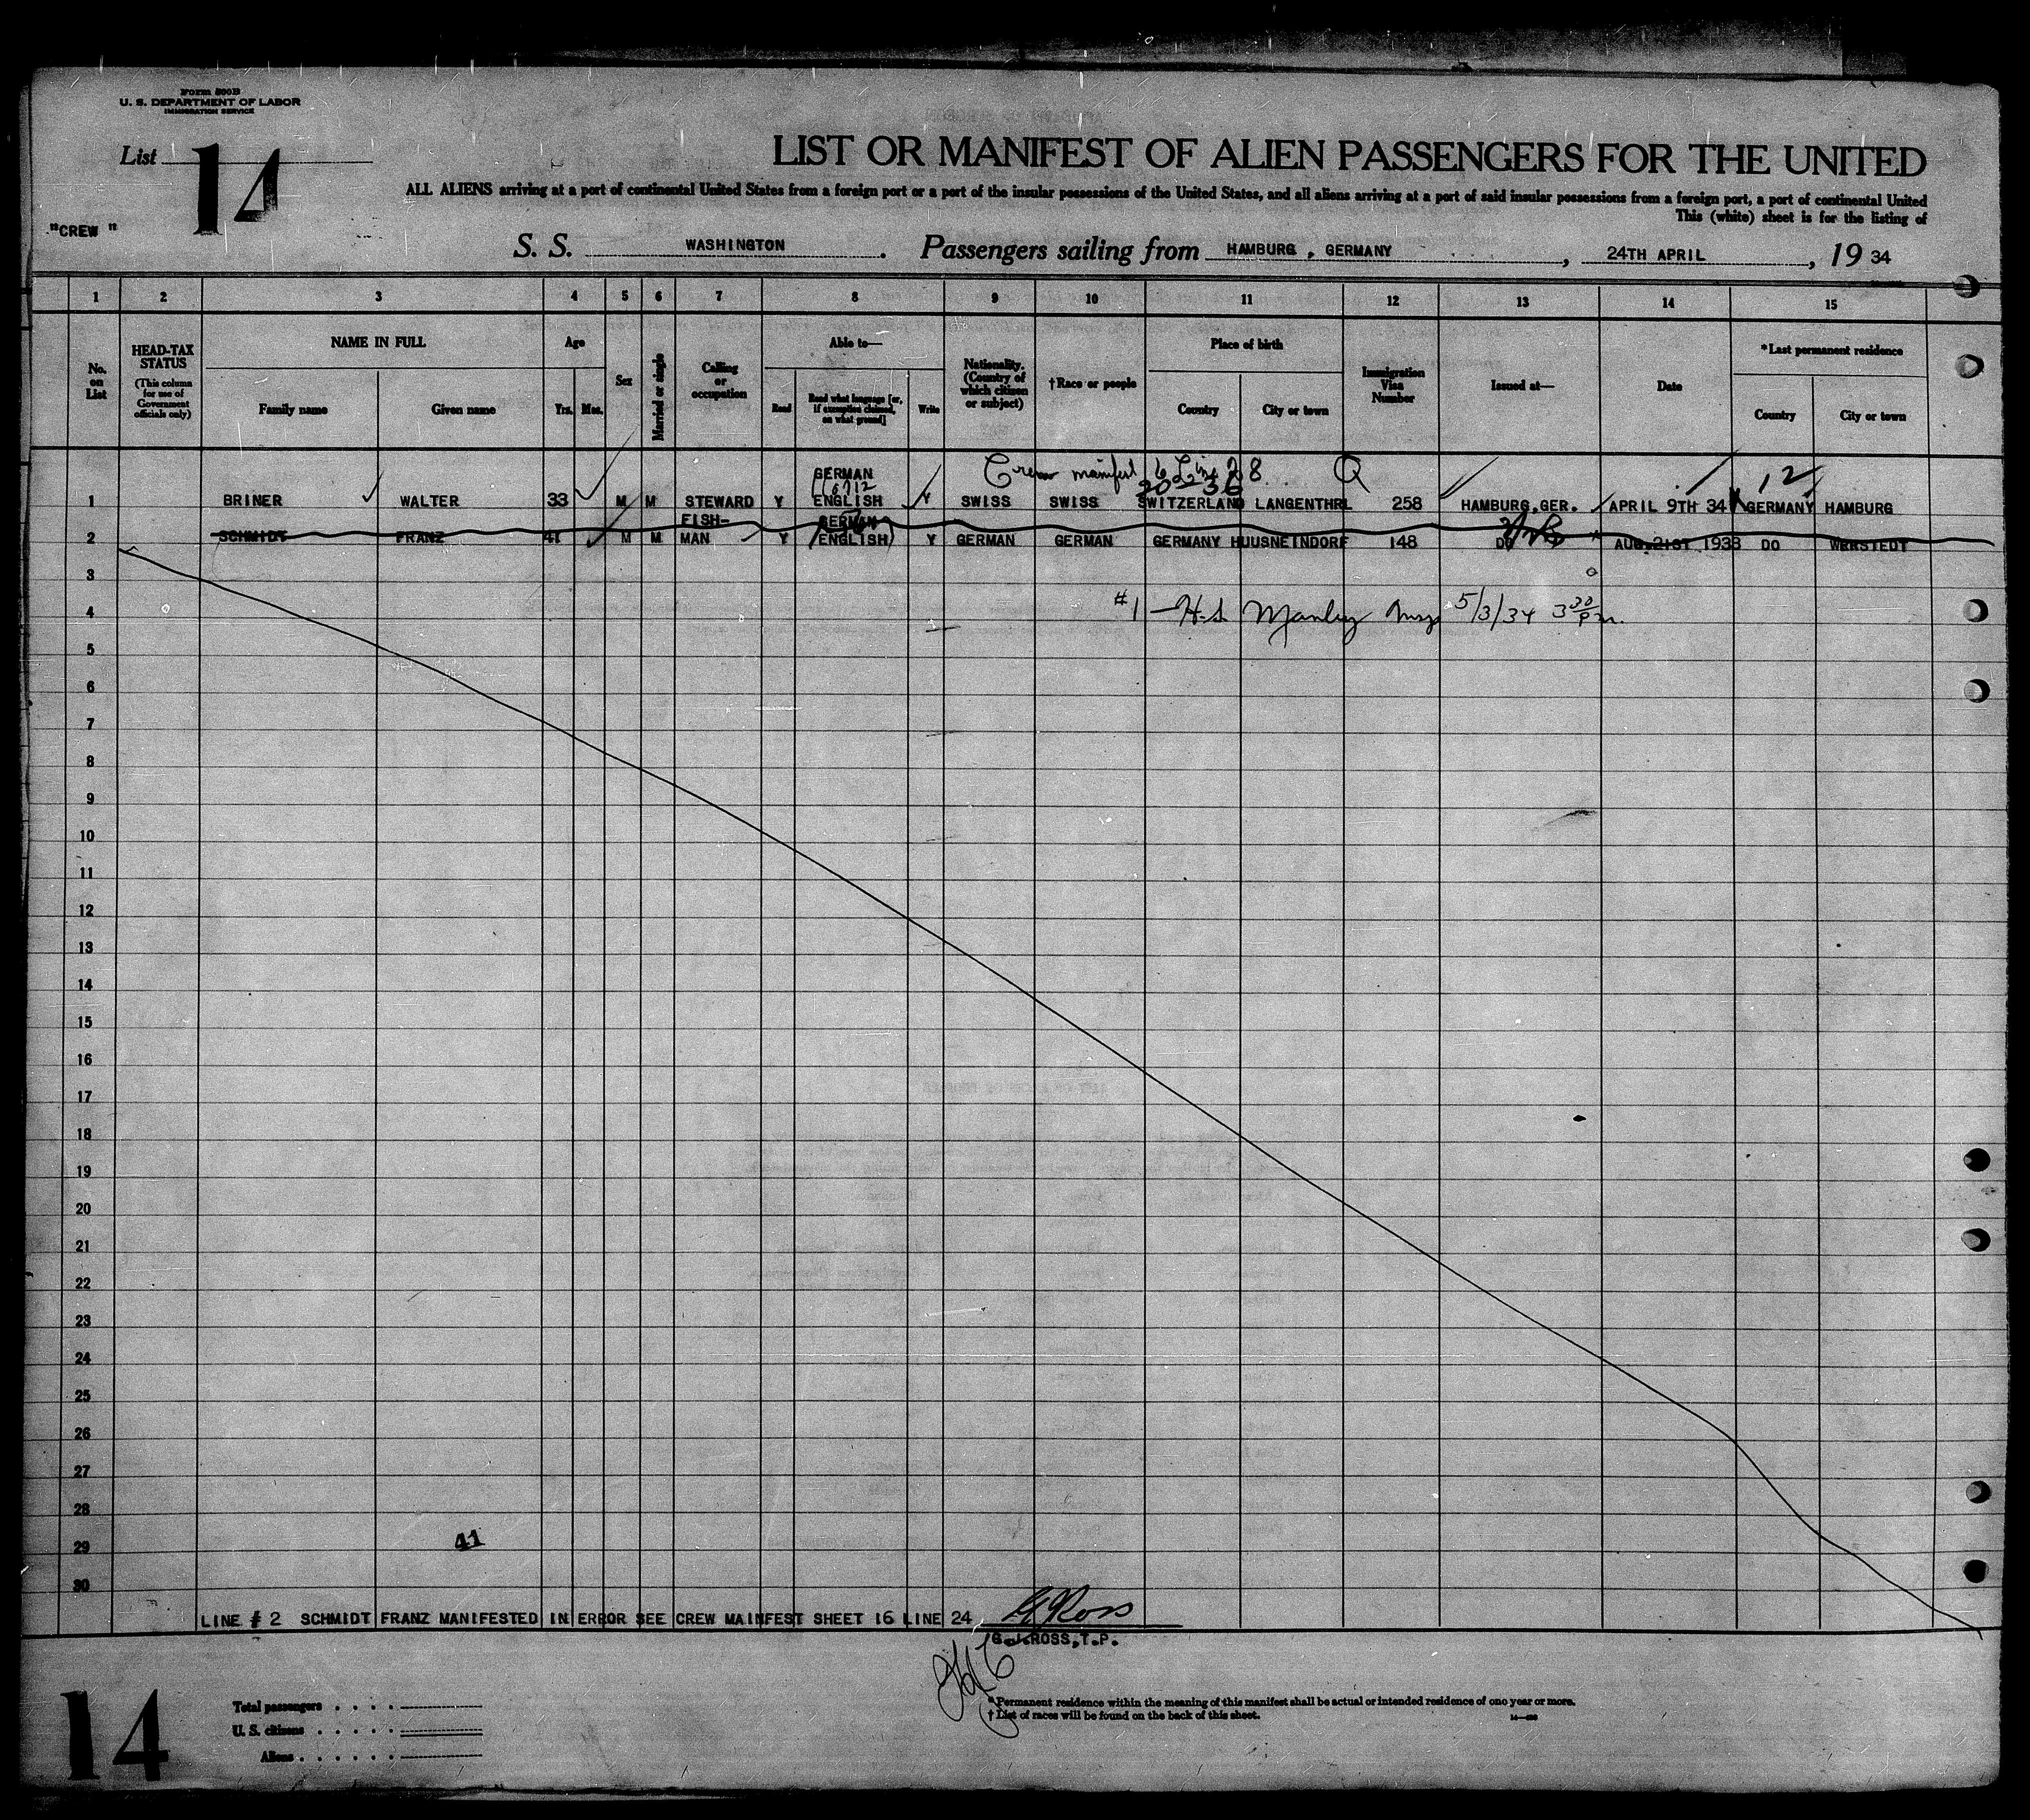 Form 500B
U. S. DEPARTMENT OF LABOR
IMMIGRATION SERVICE
List 14
"CREW"
LIST OR MANIFEST OF ALIEN PASSENGERS FOR THE UNITED
ALL ALIENS arriving at a port of continental United States from a foreign port or a port of the insular possessions of the United States, and all aliens arriving at a port of said insular possessions from a foreign port, a port of continental United
This (white) sheet is for the listing of
S. S. WASHINGTON. Passengers sailing from HAMBURG, GERMANY, 24TH APRIL, 19 34
1 2 3 4 5 6 7 8 9 10 11 12 13 14 15
No. on List
HEAD-TAX STATUS
(This column for use of Government officials only)
NAME IN FULL
Family name Given name
Age
Yrs. Mos.
Sex
Married or single
Calling or occupation
Able to—
Read Read what language [or, if exemption claimed, on what ground] Write
Nationality. (Country of which citizen or subject)
†Race or people
Place of birth
Country City or town
Immigration Visa Number
Issued at—
Date
*Last permanent residence
Country City or town
Crew manifest 6 Line 28 Q 12
GERMAN
1 BRINER WALTER 33 M M STEWARD Y ENGLISH Y SWISS SWISS SWITZERLAND LANGENTHRL 258 HAMBURG,GER. APRIL 9TH 34 GERMANY HAMBURG
FISH- GERMAN
2 SCHMIDT FRANZ 41 M M MAN Y ENGLISH Y GERMAN GERMAN GERMANY HUUSNEINDORF 148 DO AUG.21ST 1933 DO WERSTEDT
3
4 #1—H.S. Manley Insp 5/3/34 3 30 pm.
5
6
7
8
9
10
11
12
13
14
15
16
17
18
19
20
21
22
23
24
25
26
27
28
29 41
30
LINE # 2 SCHMIDT FRANZ MANIFESTED IN ERROR SEE CREW MAINFEST SHEET 16 LINE 24
G J Ross
G.J.ROSS,T.P.
14
Total passengers
U. S. citizens
Aliens
*Permanent residence within the meaning of this manifest shall be actual or intended residence of one year or more.
†List of races will be found on the back of this sheet.